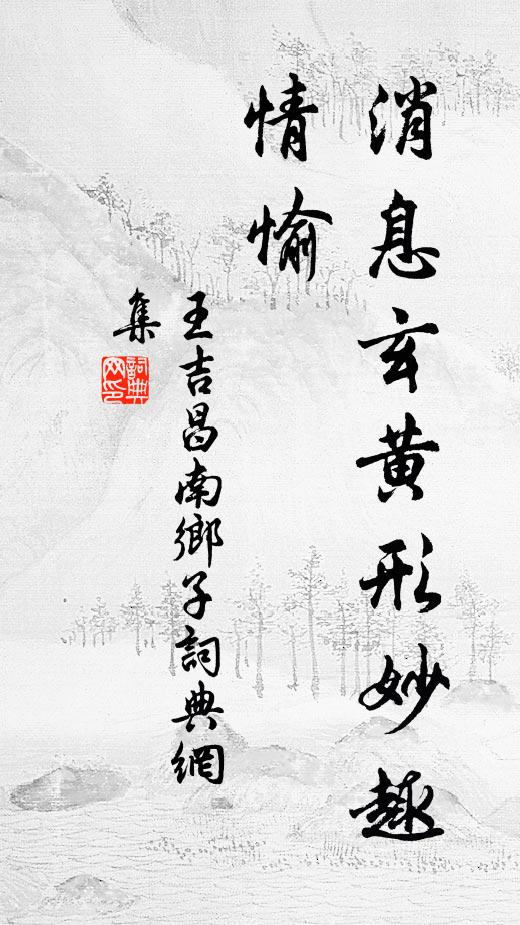 消息玄黄形妙趣
情愉
王吉昌南鄉子詞典網
集
詞典
网印